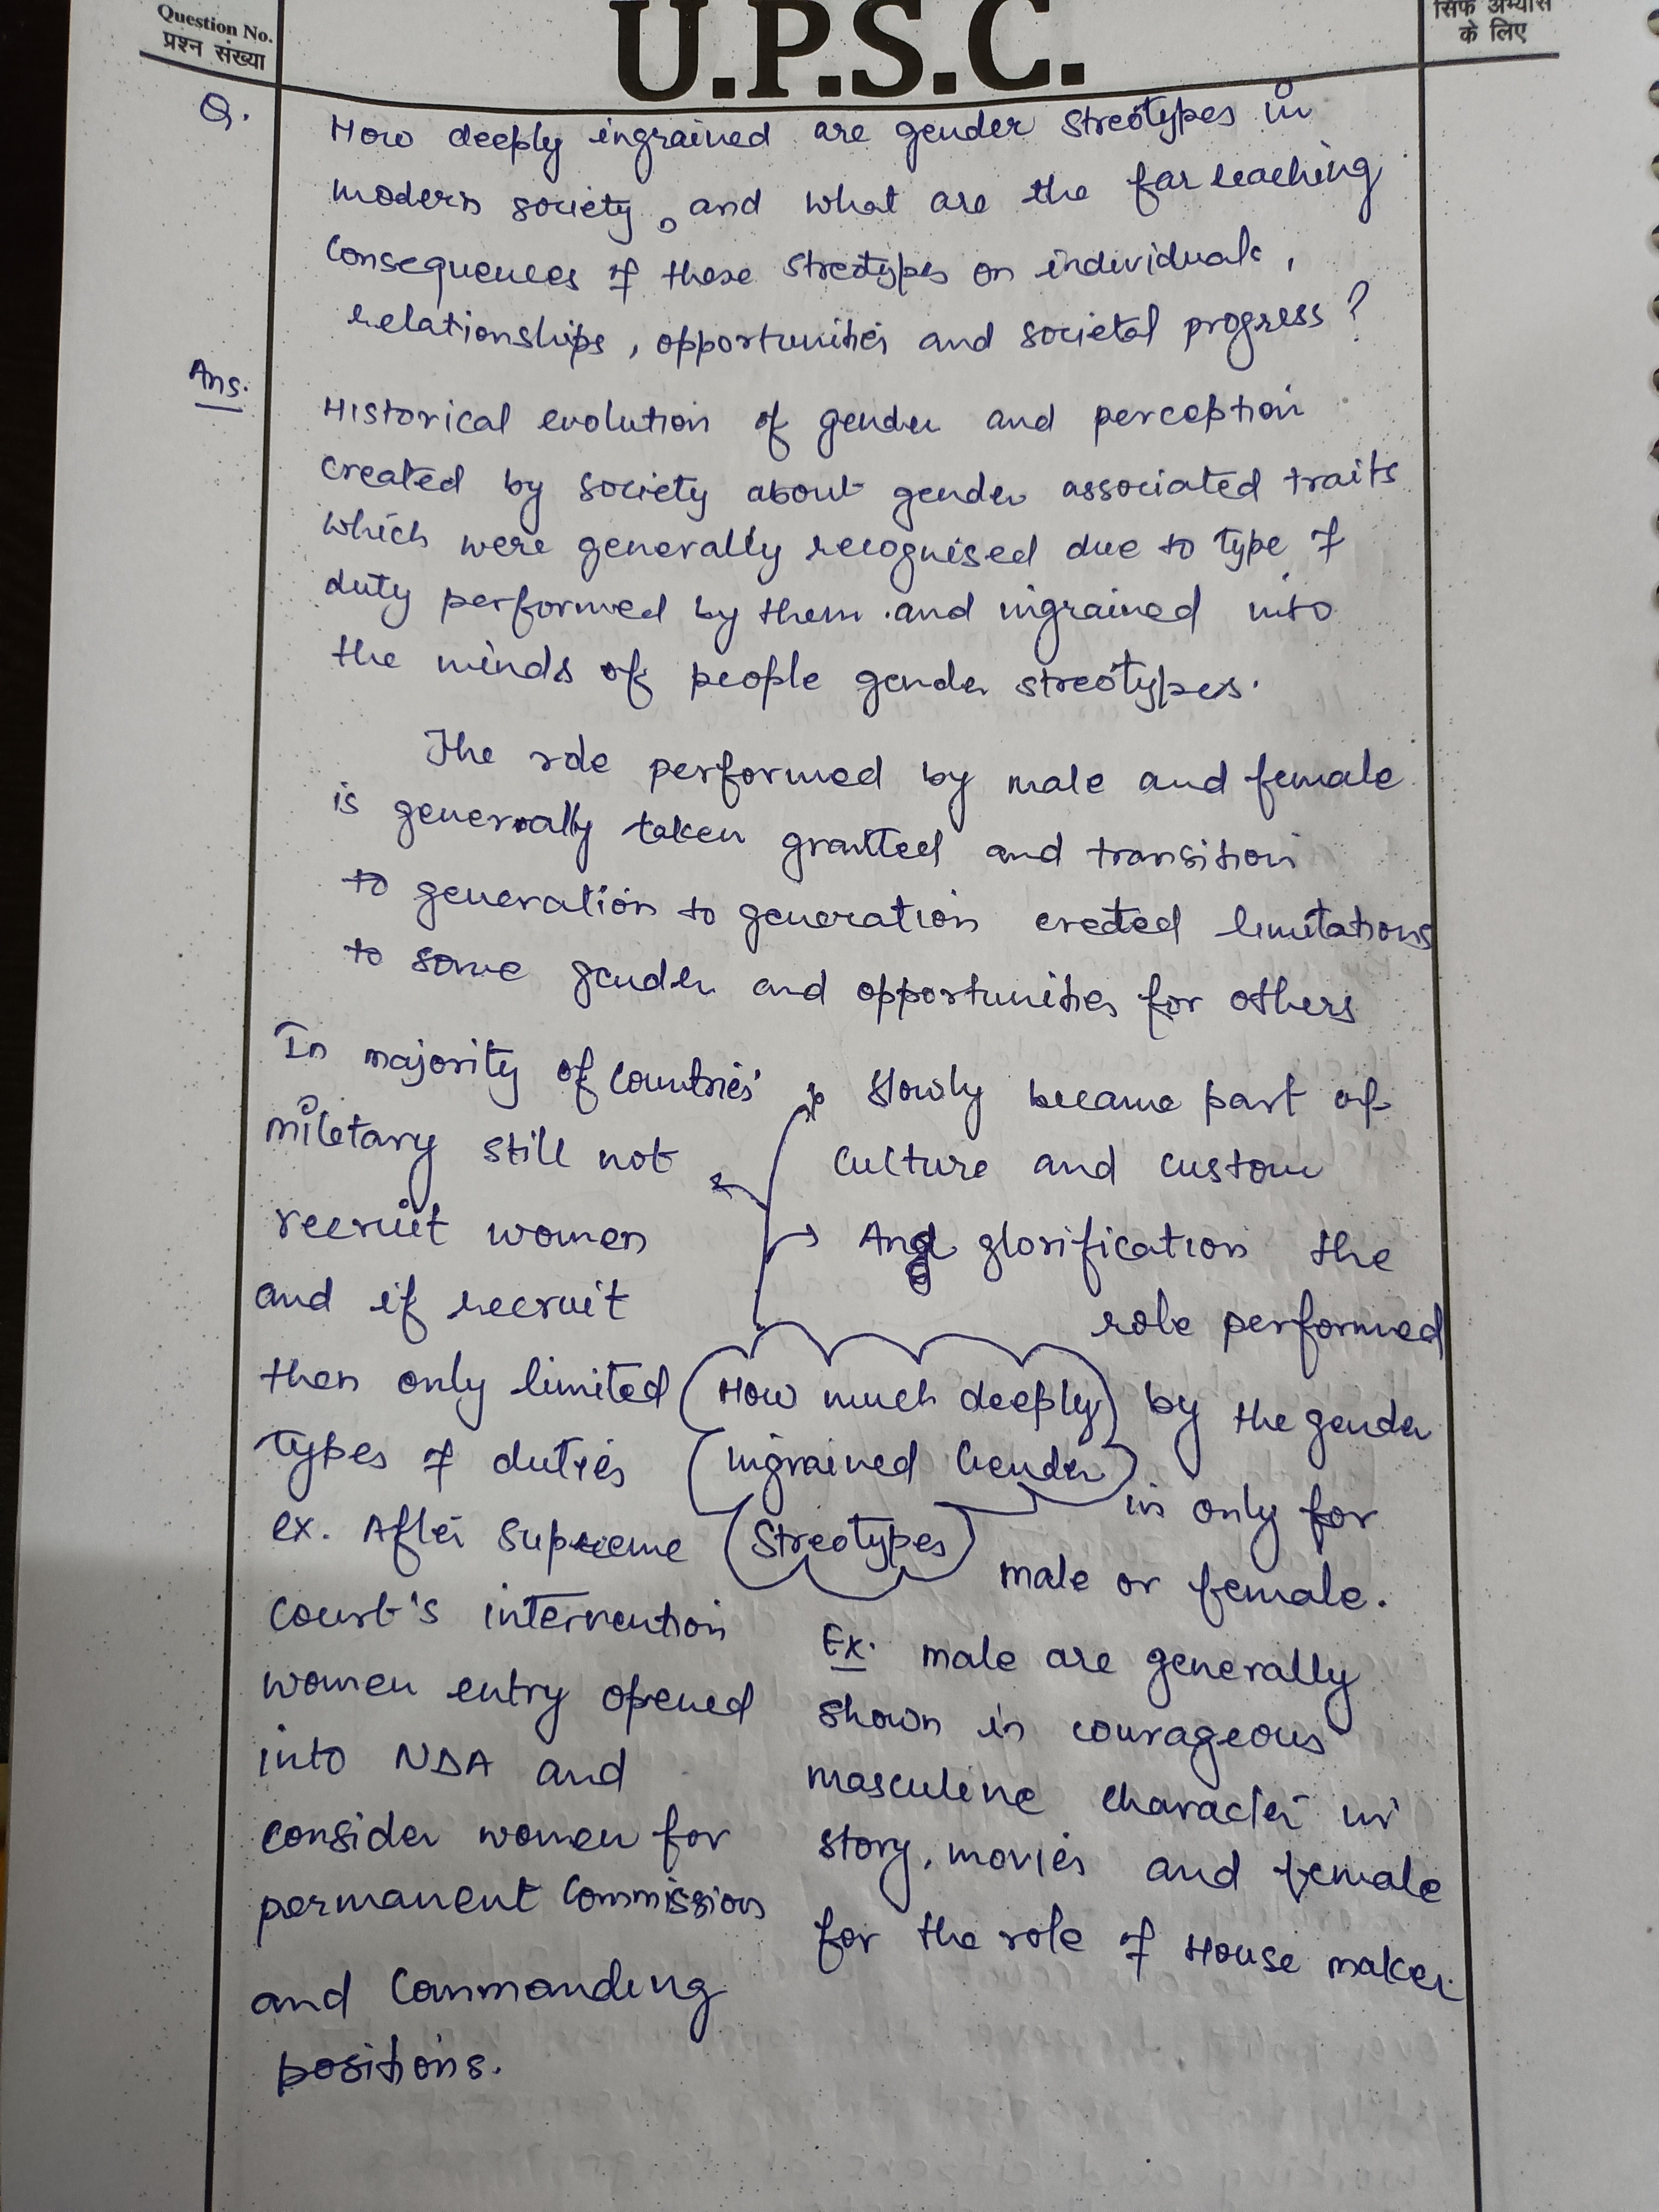 Question No.
प्रश्न संख्या
U.P.S.C.
सिर्फ अभ्यास
के लिए
Q. How deeply ingrained are gender streotypes in
modern society, and what are the far reaching
consequences of these streotypes on individuals,
relationships, opportunities and societal progress?
Ans. Historical evolution of gender and perception
created by society about gender associated traits
which were generally recognised due to type of
duty performed by them and ingrained into
the minds of people gender streotypes.
The role performed by male and female
is generally taken granted and transition
to generation to generation created limitations
to some gender and opportunities for others
In majority of countries'
miletary still not
recruit women
and if recruit
then only limited
types of duties
ex. After Supreme
court's intervention
women entry opened
into NDA and
consider women for
permanent Commission
and Commanding
positions.
How much deeply
ingrained Gender
Streotypes
Slowly became part of
culture and custom
→ And glorification the
role performed
by the gender
is only for
male or female.
Ex. male are generally
shown in courageous
masculine character in
story, movies and female
for the role of House maker